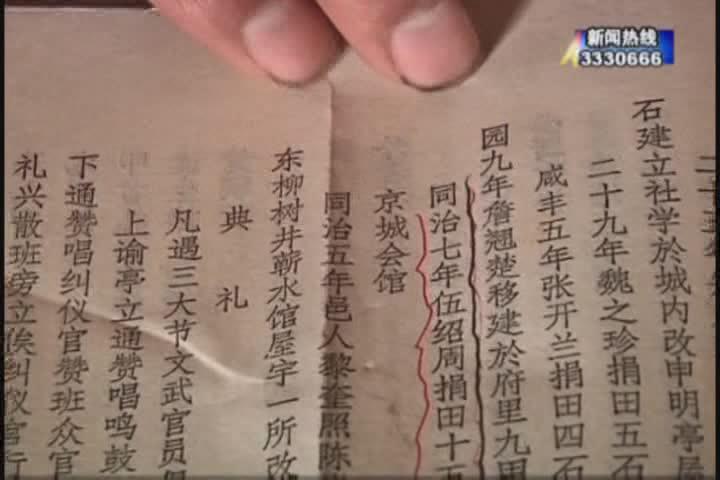 新闻热线
3330666
石建立社学於城内改申明亭
二十九年魏之珍捐田五石
咸丰五年张开兰捐田四石
园九年詹翘楚移建於府里九甲
同治七年伍绍周捐田十五
京城会馆
同治五年邑人黎奎照陈
东柳树井蕲水馆屋宇一所改
典礼
凡遇三大节文武官员
上谕亭立通赞唱鸣鼓
下通赞唱纠仪官赞班众官
礼兴散班旁立俟纠仪官行